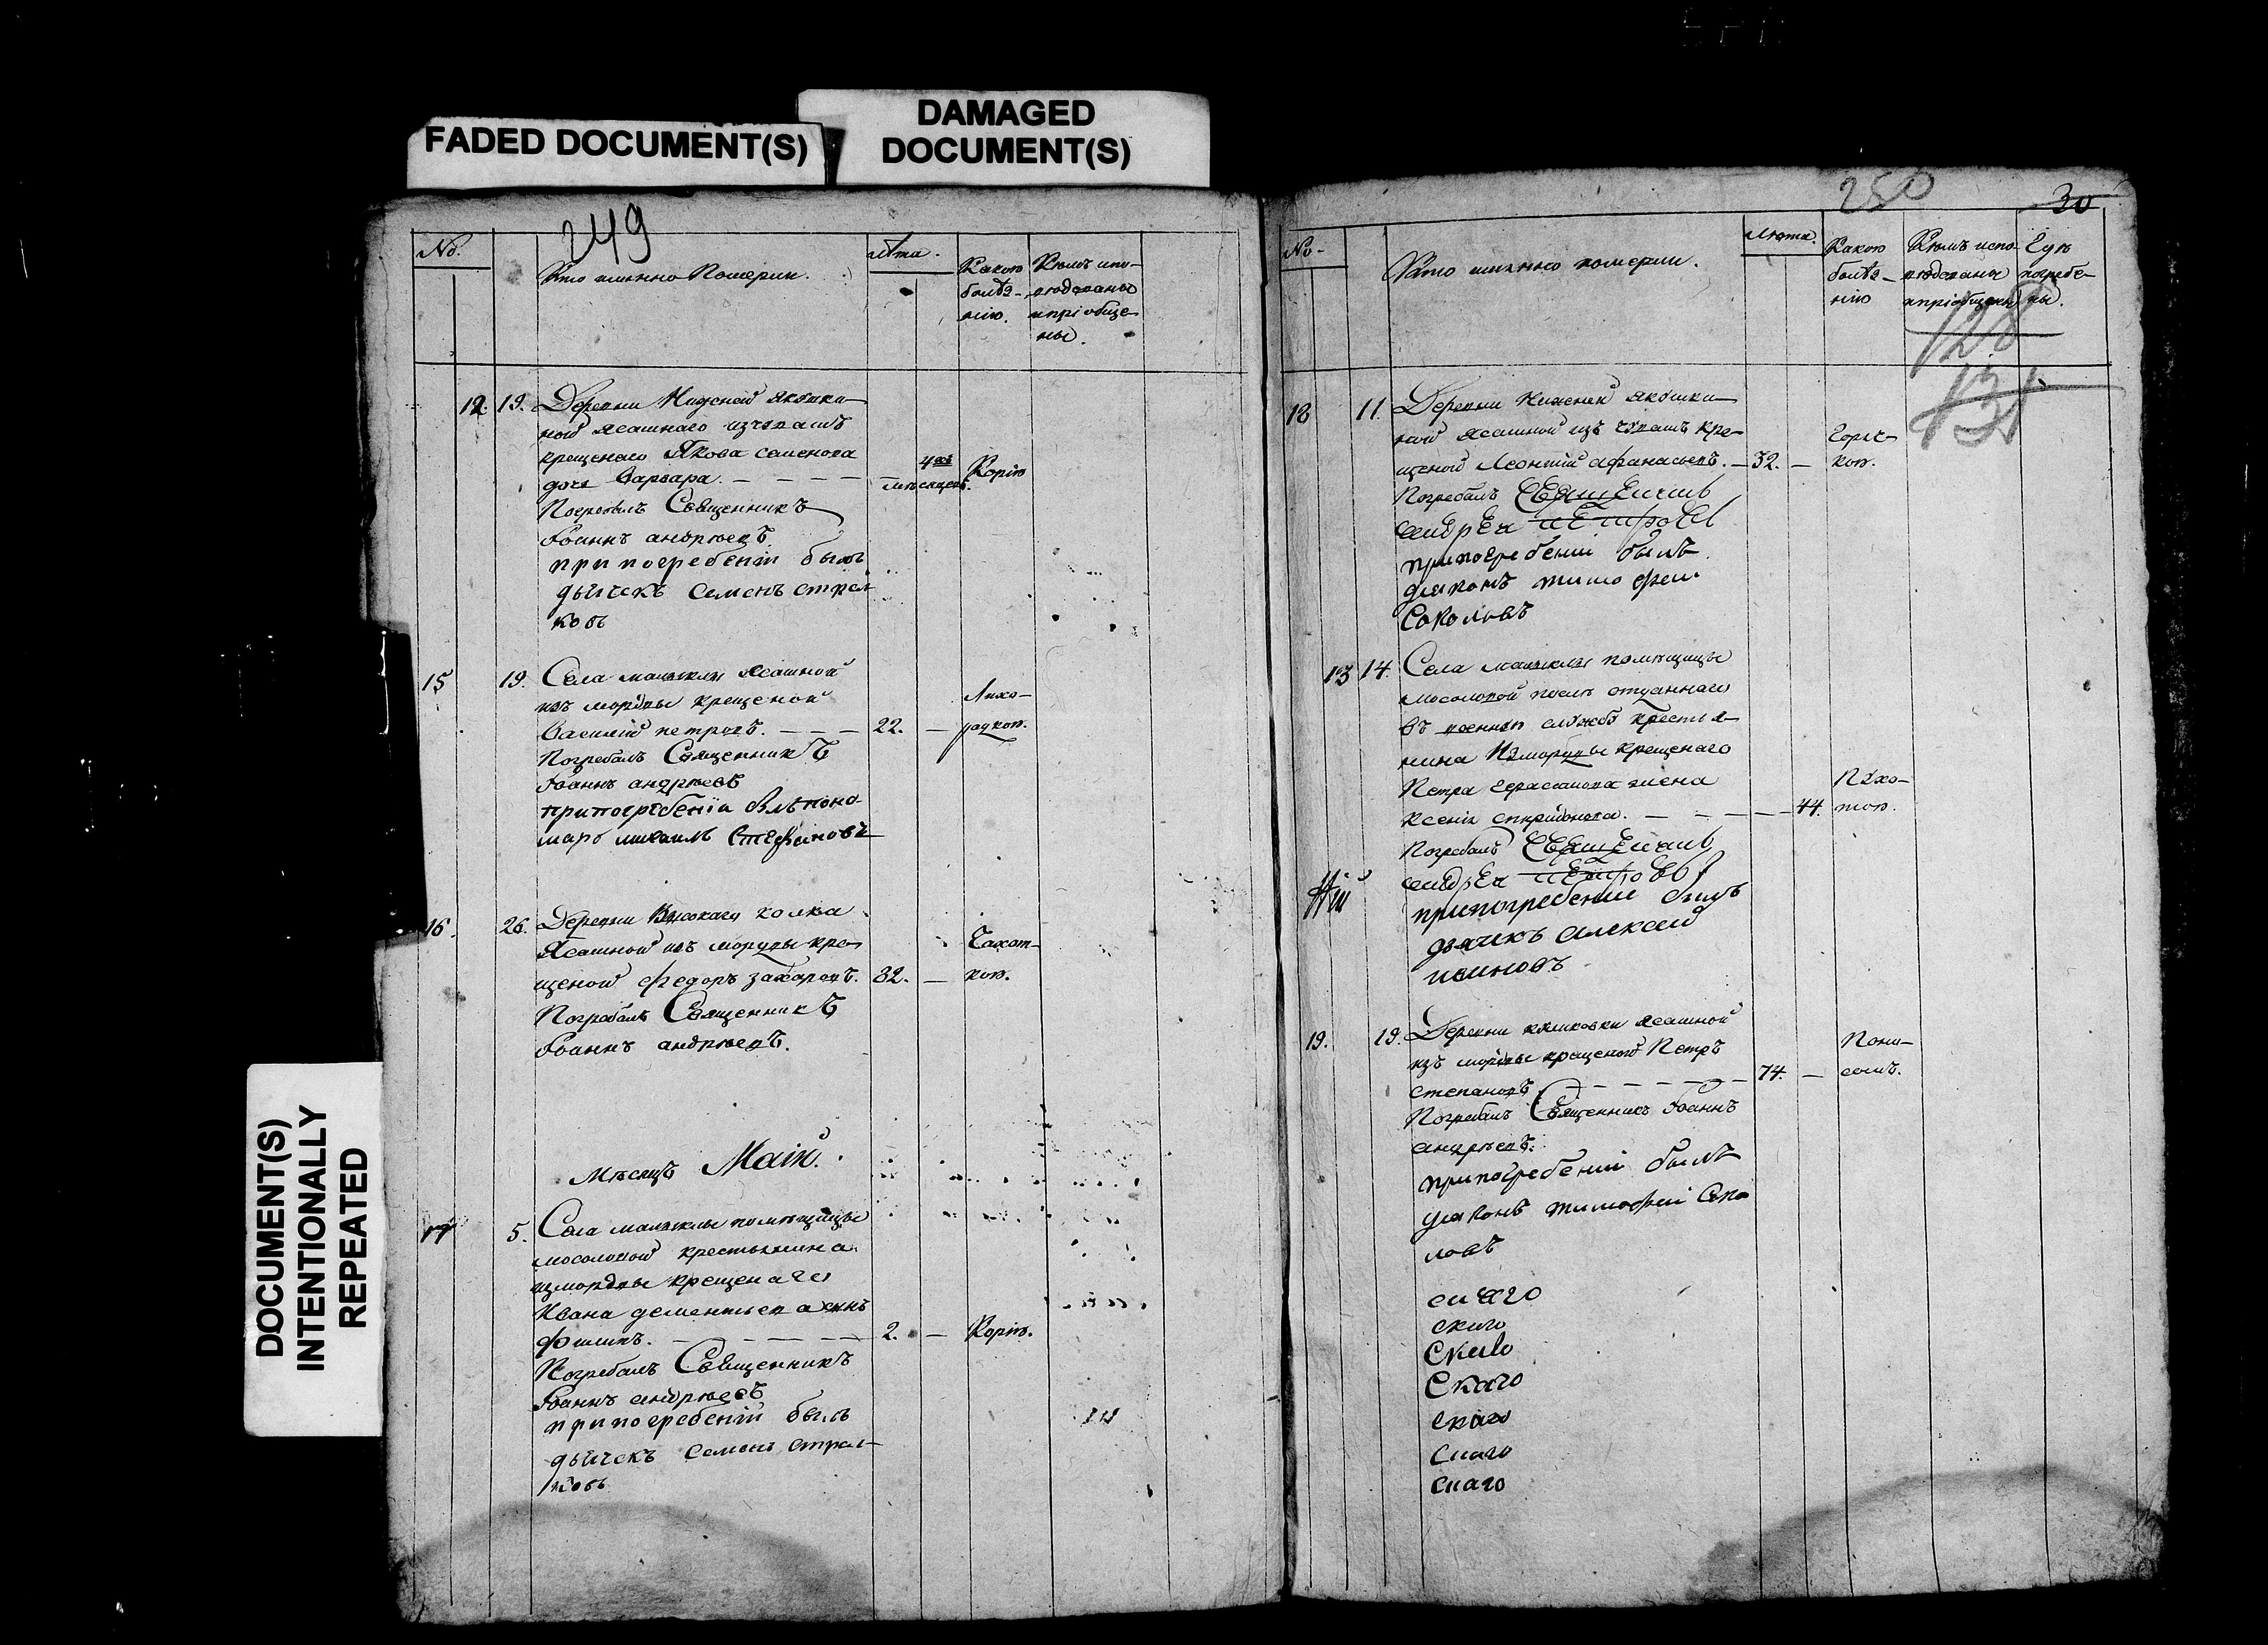 FADED DOCUMENT(S)
DAMAGED
DOCUMENT(S)
DOCUMENT(S)
INTENTIONALLY
REPEATED
249
No.
Кто именно Померли.
лѣта.
Какою
болѣз-
нію.
Кѣмъ испо-
вѣдованы
и пріобще-
ны.
12. 19. Деревни Нижней Якушки
ной ясашнаго изъ чувашъ
крещенаго Якова семенова
дочь Варвара. 4хъ мѣсяцовъ. Корію
Погребалъ Священникъ
Іоаннъ андрѣевъ.
при погребеніи былъ
дьячекъ Семенъ стрел
ковъ
15 19. Села малыклы Ясашной
изъ мордвы крещеной
Василій петровъ. 22. Лихо-
радкою.
Погребалъ Священникъ
Іоаннъ андрѣевъ
при погребеніи былъ поно-
марь михаилъ Стефановъ
16. 26. Деревни Высокаго колка
Ясашной изъ мордвы кре-
щеной федоръ захаровъ. 32. Чахот-
кою.
Погребалъ Священникъ
Іоаннъ андрѣевъ.
Мѣсяцъ Маій.
17 5. Села малыклы помѣщицы
мосоловой крестьянина
измордвы крещенаго
Ивана дементьева сынъ
филипъ. 2. Корію.
Погребалъ Священникъ
Іоаннъ андрѣевъ
при погребеніи былъ
дьячекъ Семенъ стрел-
ковъ
250
30
No
Кто именно померли.
лѣта.
Какою
болѣз-
нію
Кѣмъ испо-
вѣдованы
и пріобщены
Гдѣ
погребе-
ны.
128
131
18 11. Деревни Нижней Якушки
ной ясашной изъ чувашъ кре-
щеной Леонтій афанасьевъ. 32. Горяч-
кою.
Погребалъ Священникъ
андрей петровъ
при погребеніи былъ
діаконъ тимофеи
Соколовъ
13 14. Села малыклы помѣщицы
мосоловой послѣ отданнаго
въ военную службу крестья-
нина Измордвы крещенаго
Петра жена
Ксенія спиридонова. 44. Пухо-
тою.
Погребалъ Священникъ
андрей петровъ
при погребеніи былъ
дьячекъ алексей
ивановъ
19. 19. Деревни куликовки ясашной
изъ мордвы крещеной Петръ
степановъ 74. Поно-
сомъ.
Погребалъ Священникъ Іоаннъ
андрѣевъ.
при погребеніи былъ
діаконъ тимофеи Соко
ловъ
скаго
скаго
Скаго
Скаго
скаго
скаго
скаго